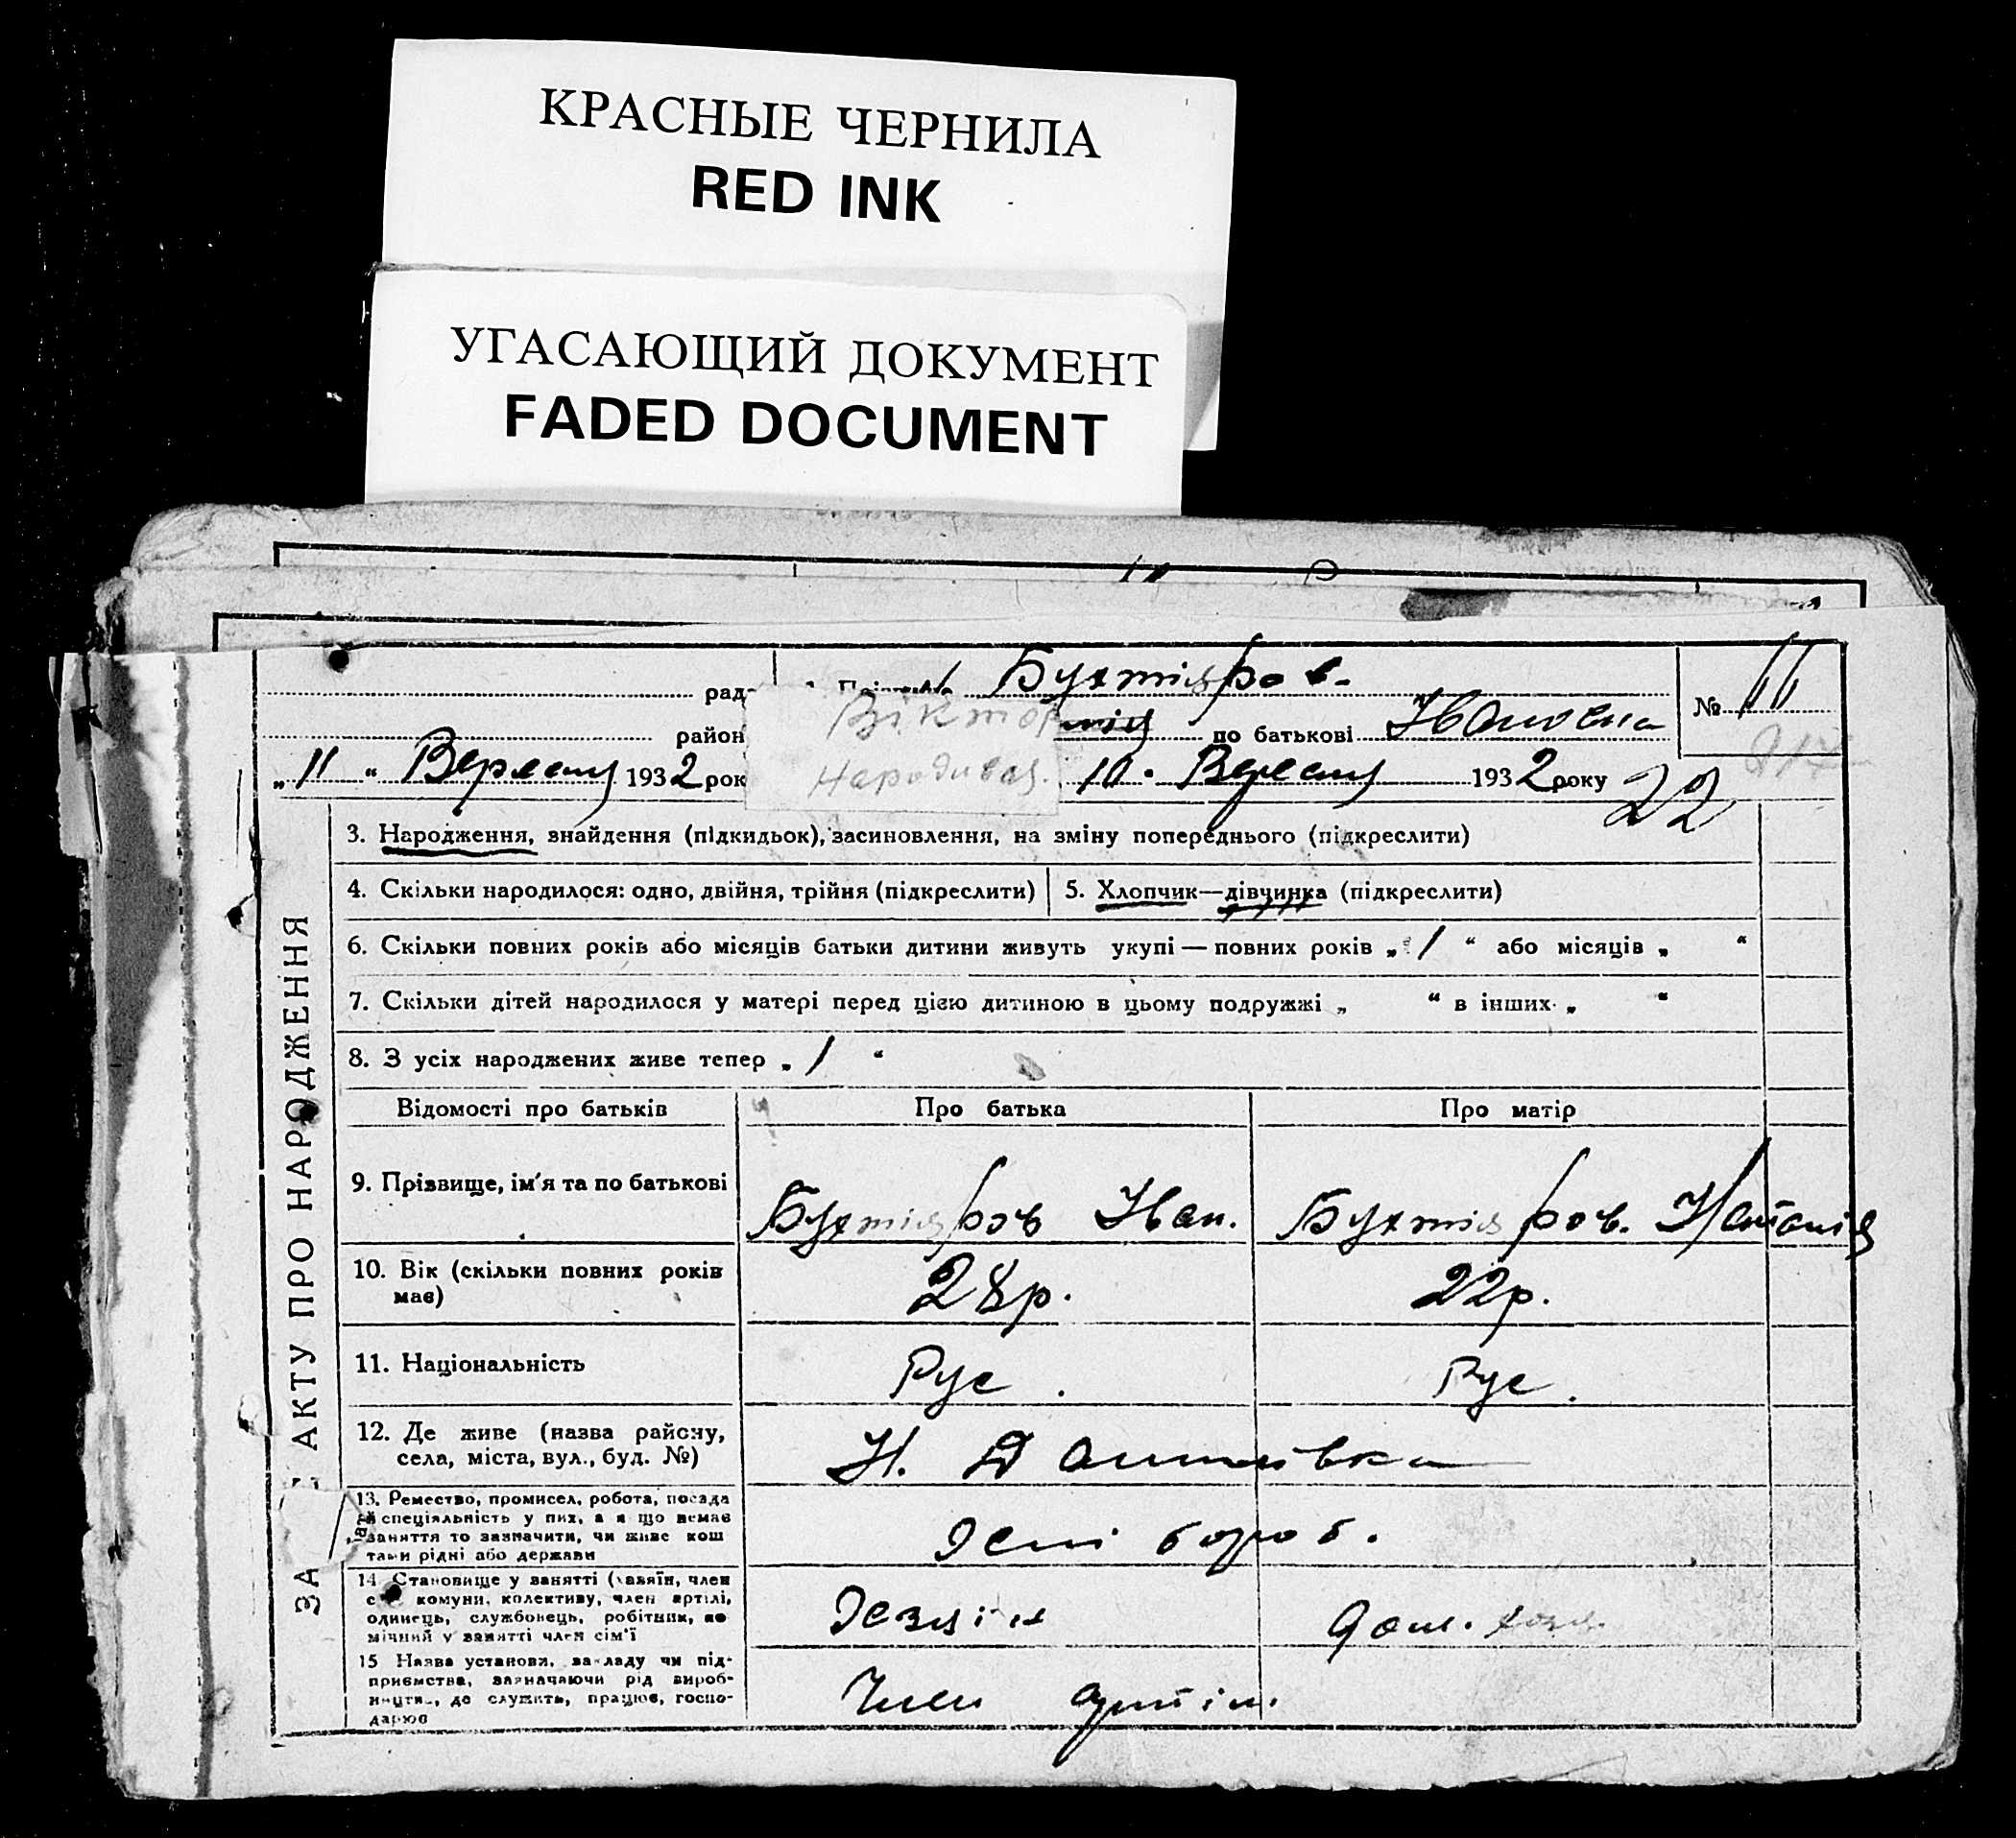 КРАСНЫЕ ЧЕРНИЛА
RED INK
УГАСАЮЩИЙ ДОКУМЕНТ
FADED DOCUMENT
рад Бухтияров.
№ 11
район Віктор по батькові Ивановна
„ 11 “ Вересня 1932 рок Народився. 10. Вересня 1932 року 22
ЗА АКТУ ПРО НАРОДЖЕННЯ
3. Народження, знайдення (підкидьок), засиновлення, на зміну попереднього (підкреслити)
4. Скільки народилося: одно, двійня, трійня (підкреслити) 5. Хлопчик—дівчинка (підкреслити)
6. Скільки повних років або місяців батьки дитини живуть укупі — повних років „ 1 “ або місяців „ “
7. Скільки дітей народилося у матері перед цією дитиною в цьому подружжі „ “ в інших „ “
8. З усіх народжених живе тепер „ 1 “
Відомості про батьків Про батька Про матір
9. Прізвище, ім'я та по батькові Бухтіяров Иван. Бухтіяров. Наталія
10. Вік (скільки повних років
має) 28р. 22р.
11. Національність Рус. Рус.
12. Де живе (назва району,
села, міста, вул., буд. №) Н.
13. Ремество, промисел, робота, посада
й спеціяльність у них, а я що немає
заняття то зазначити, чи живе кош
тами рідні або держави
14. Становище у занятті (хазяїн, член
комуни, колективу, член артілі,
одинець, службовець, робітник, по
мічний у занятті член сім'ї дом. хозя.
15 Назва установи, закладу чи під-
приємства, зазначаючи рід вироб-
ництва, де служить, працює, госпо-
дарює Член артіл.